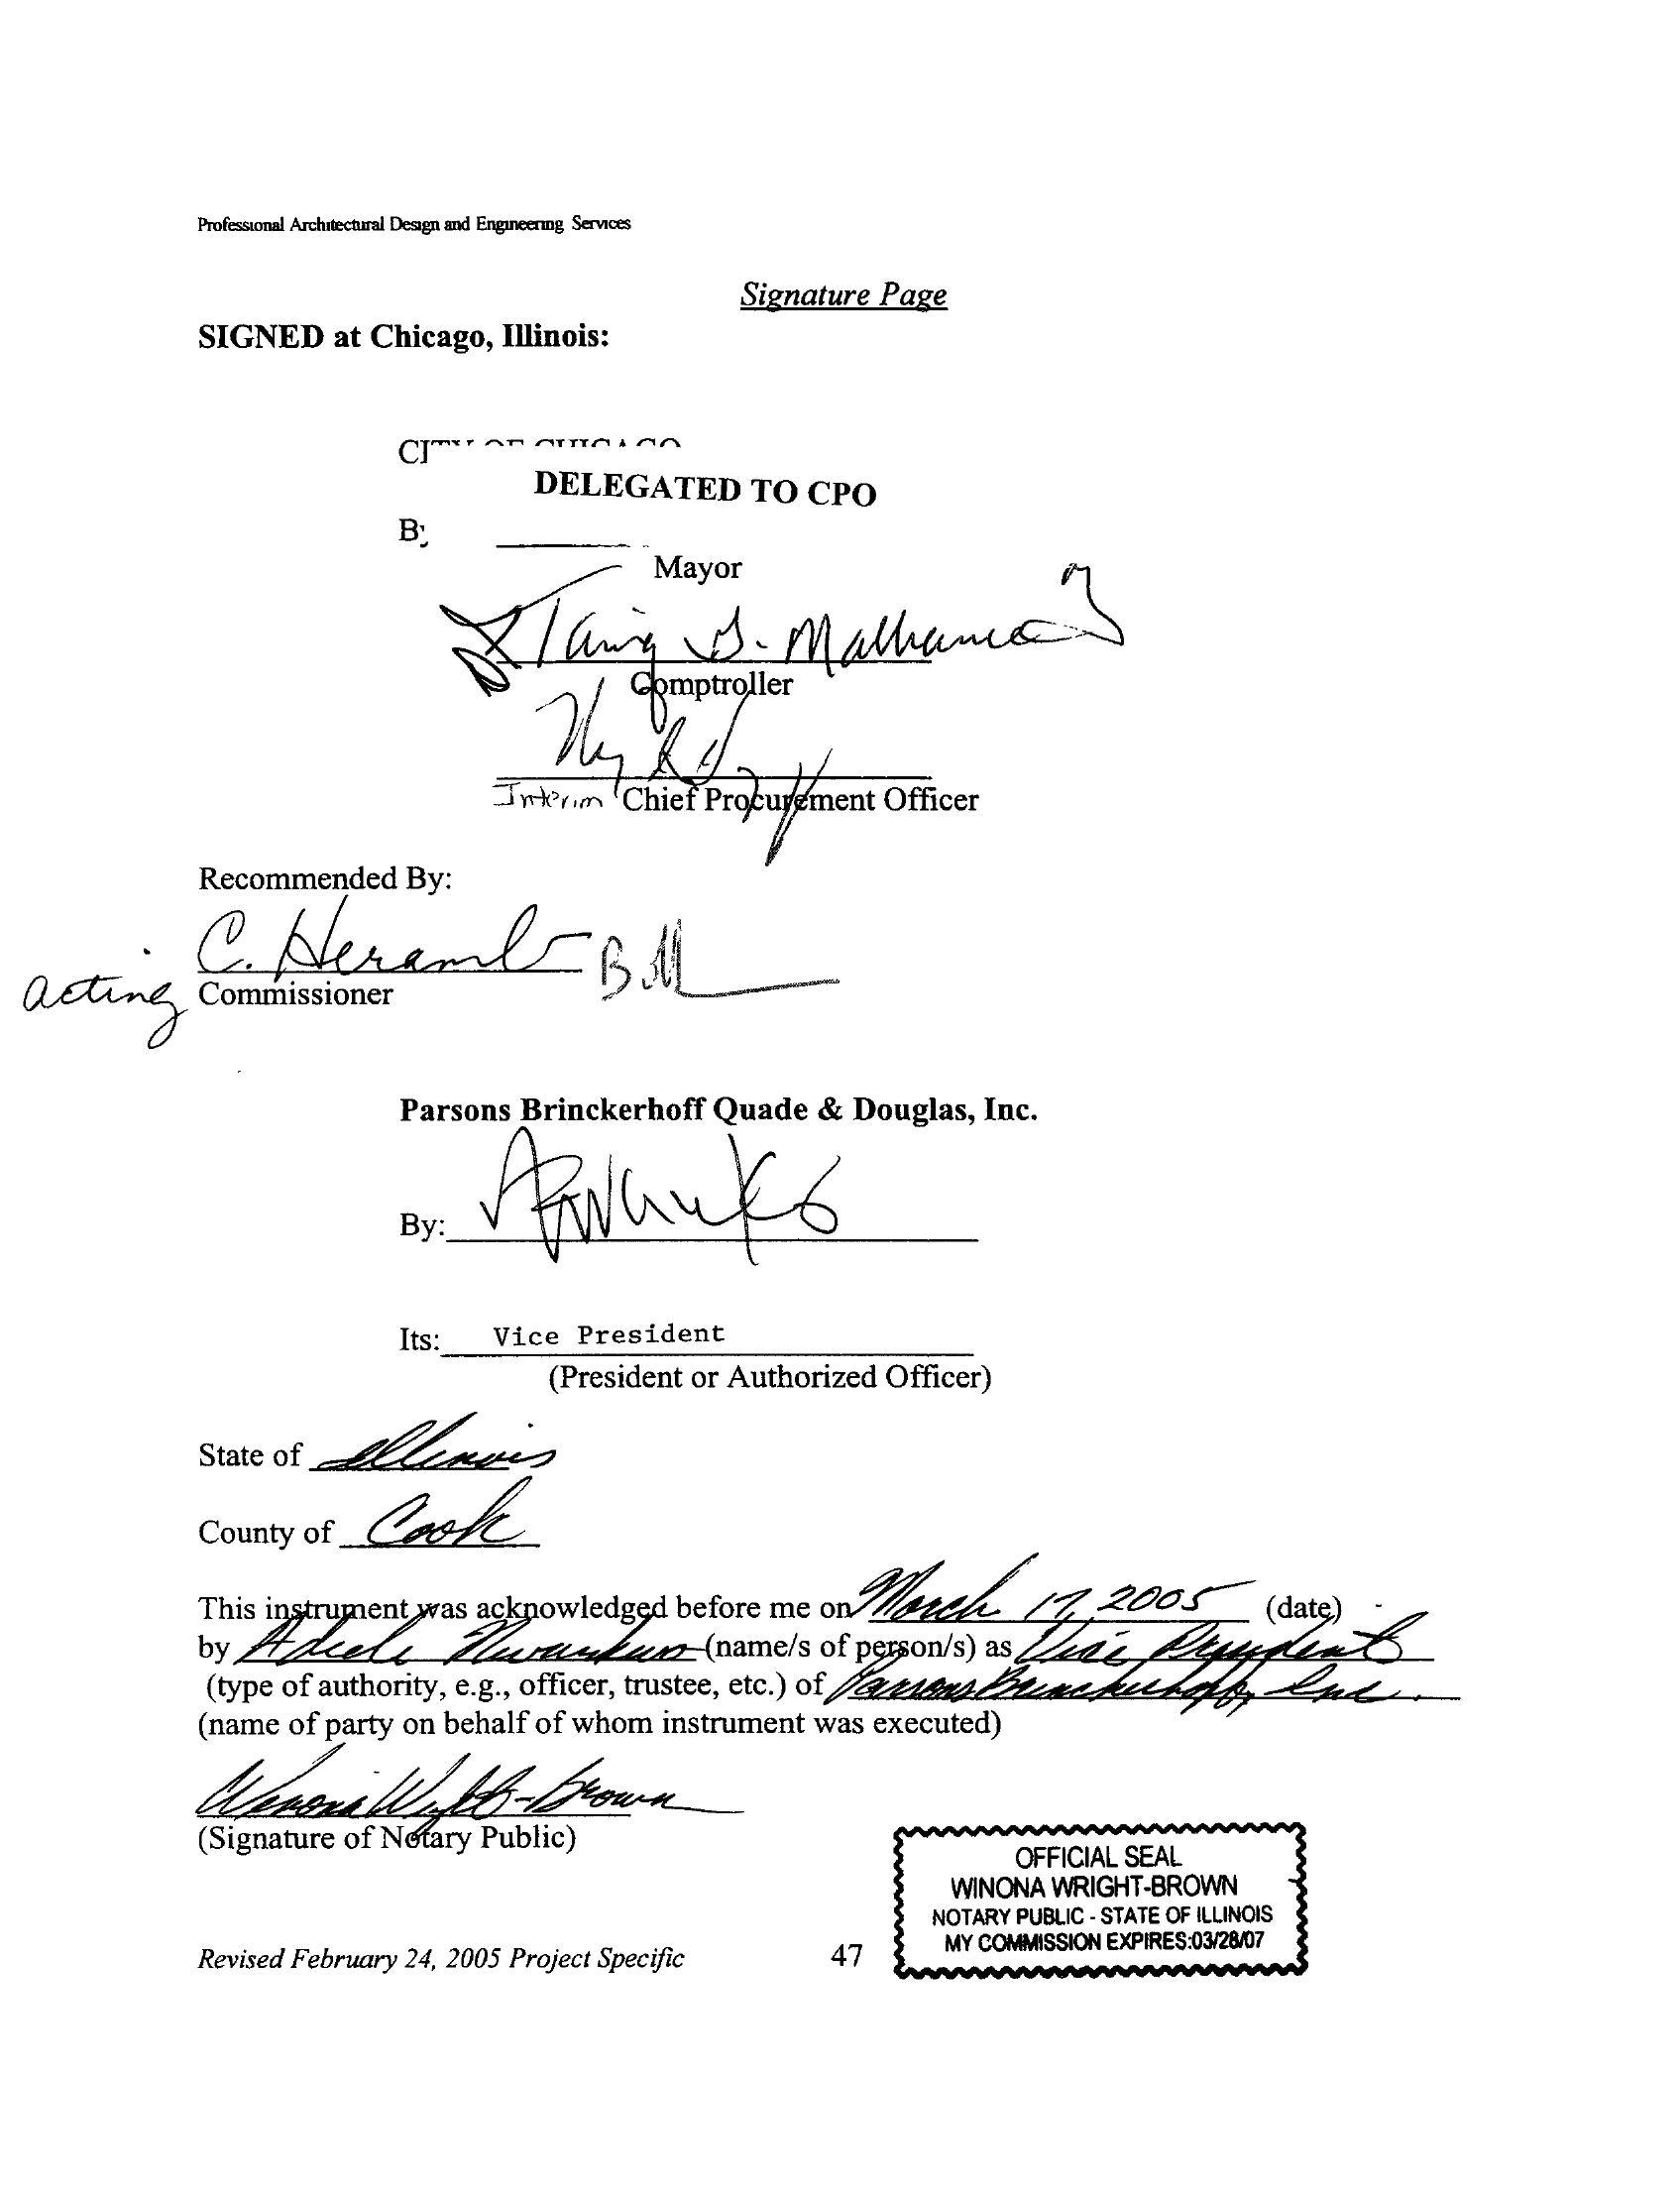 Professional Architectural Design and Engineering Services
Signature Page
SIGNED at Chicago, Illinois:
CITY OF CHICAGO
DELEGATED TO CPO
By
Mayor
Comptroller
Interim Chief Procurement Officer
Recommended By:
C. Heramb
acting Commissioner
Parsons Brinckerhoff Quade & Douglas, Inc.
By:
Its: Vice President
(President or Authorized Officer)
State of Illinois
County of Cook
This instrument was acknowledged before me on March 17, 2005 (date)
by Adele Nwankwo (name/s of person/s) as Vice President
(type of authority, e.g., officer, trustee, etc.) of Parsons Brinckerhoff, Inc.
(name of party on behalf of whom instrument was executed)
Winona Wright-Brown
(Signature of Notary Public)
OFFICIAL SEAL
WINONA WRIGHT-BROWN
NOTARY PUBLIC - STATE OF ILLINOIS
MY COMMISSION EXPIRES:03/28/07
Revised February 24, 2005 Project Specific 47